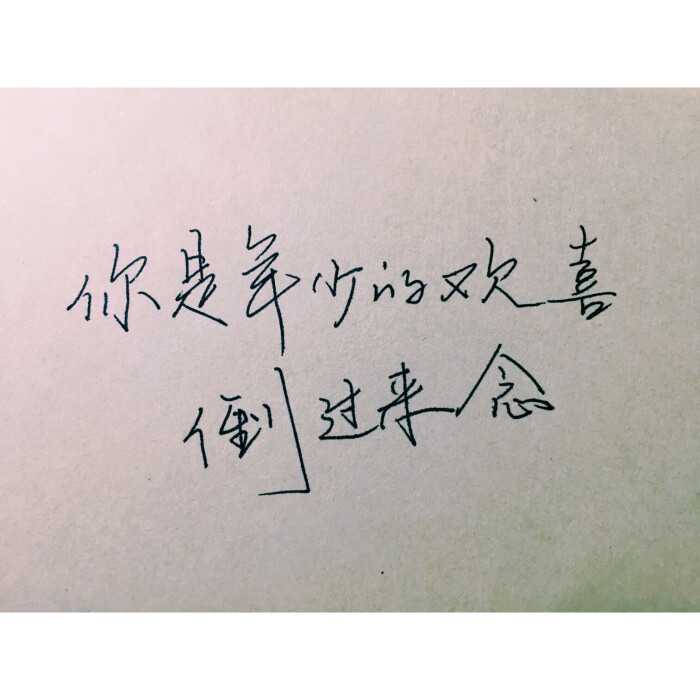 你是年少的欢喜
倒过来念